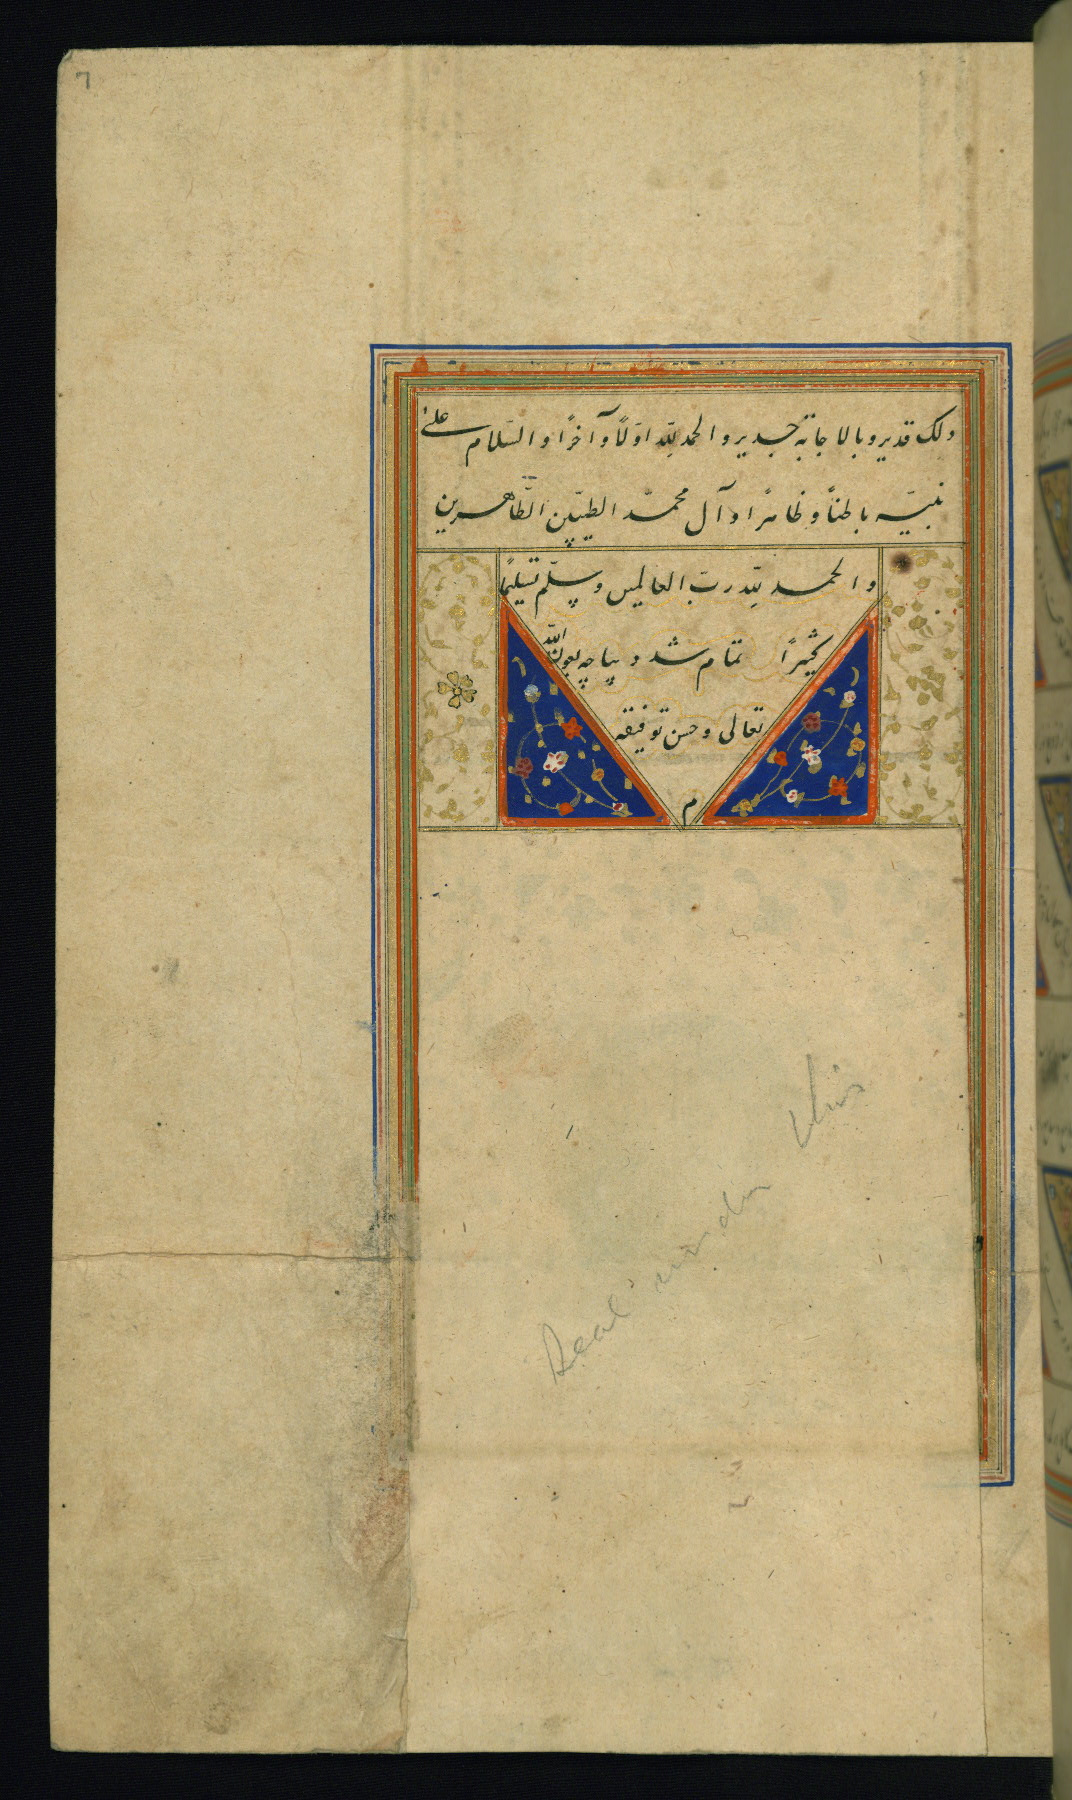 7
ذلک قدیر و بالاجابة جدیر و الحمد لله اوّلاً و آخراً و السّلام علی
نبیّه باطناً و ظاهراً و آل محمّد الطیّبین الطّاهرین
و الحمد لله ربّ العالمین و سلّم تسلیماً
کثیراً تمام شد دیباچه بعون الله
تعالی و حسن توفیقه
م